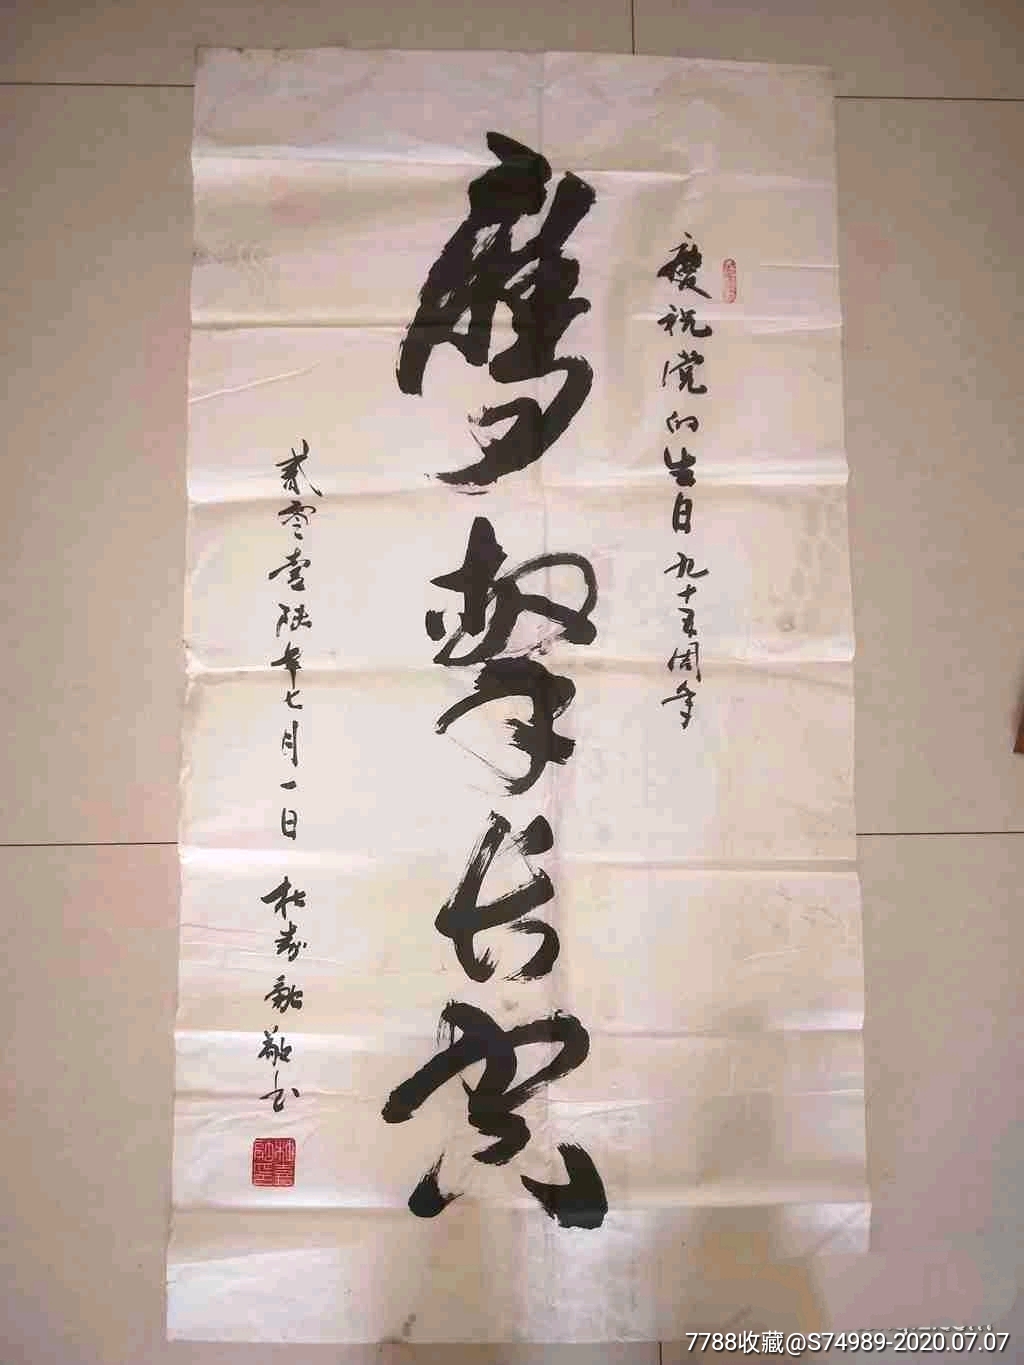 慶祝党的生日九十五周年
鹰擊长空
贰零壹陆年七月一日 杜嘉融敬书
7788收藏@S74989-2020.07.07